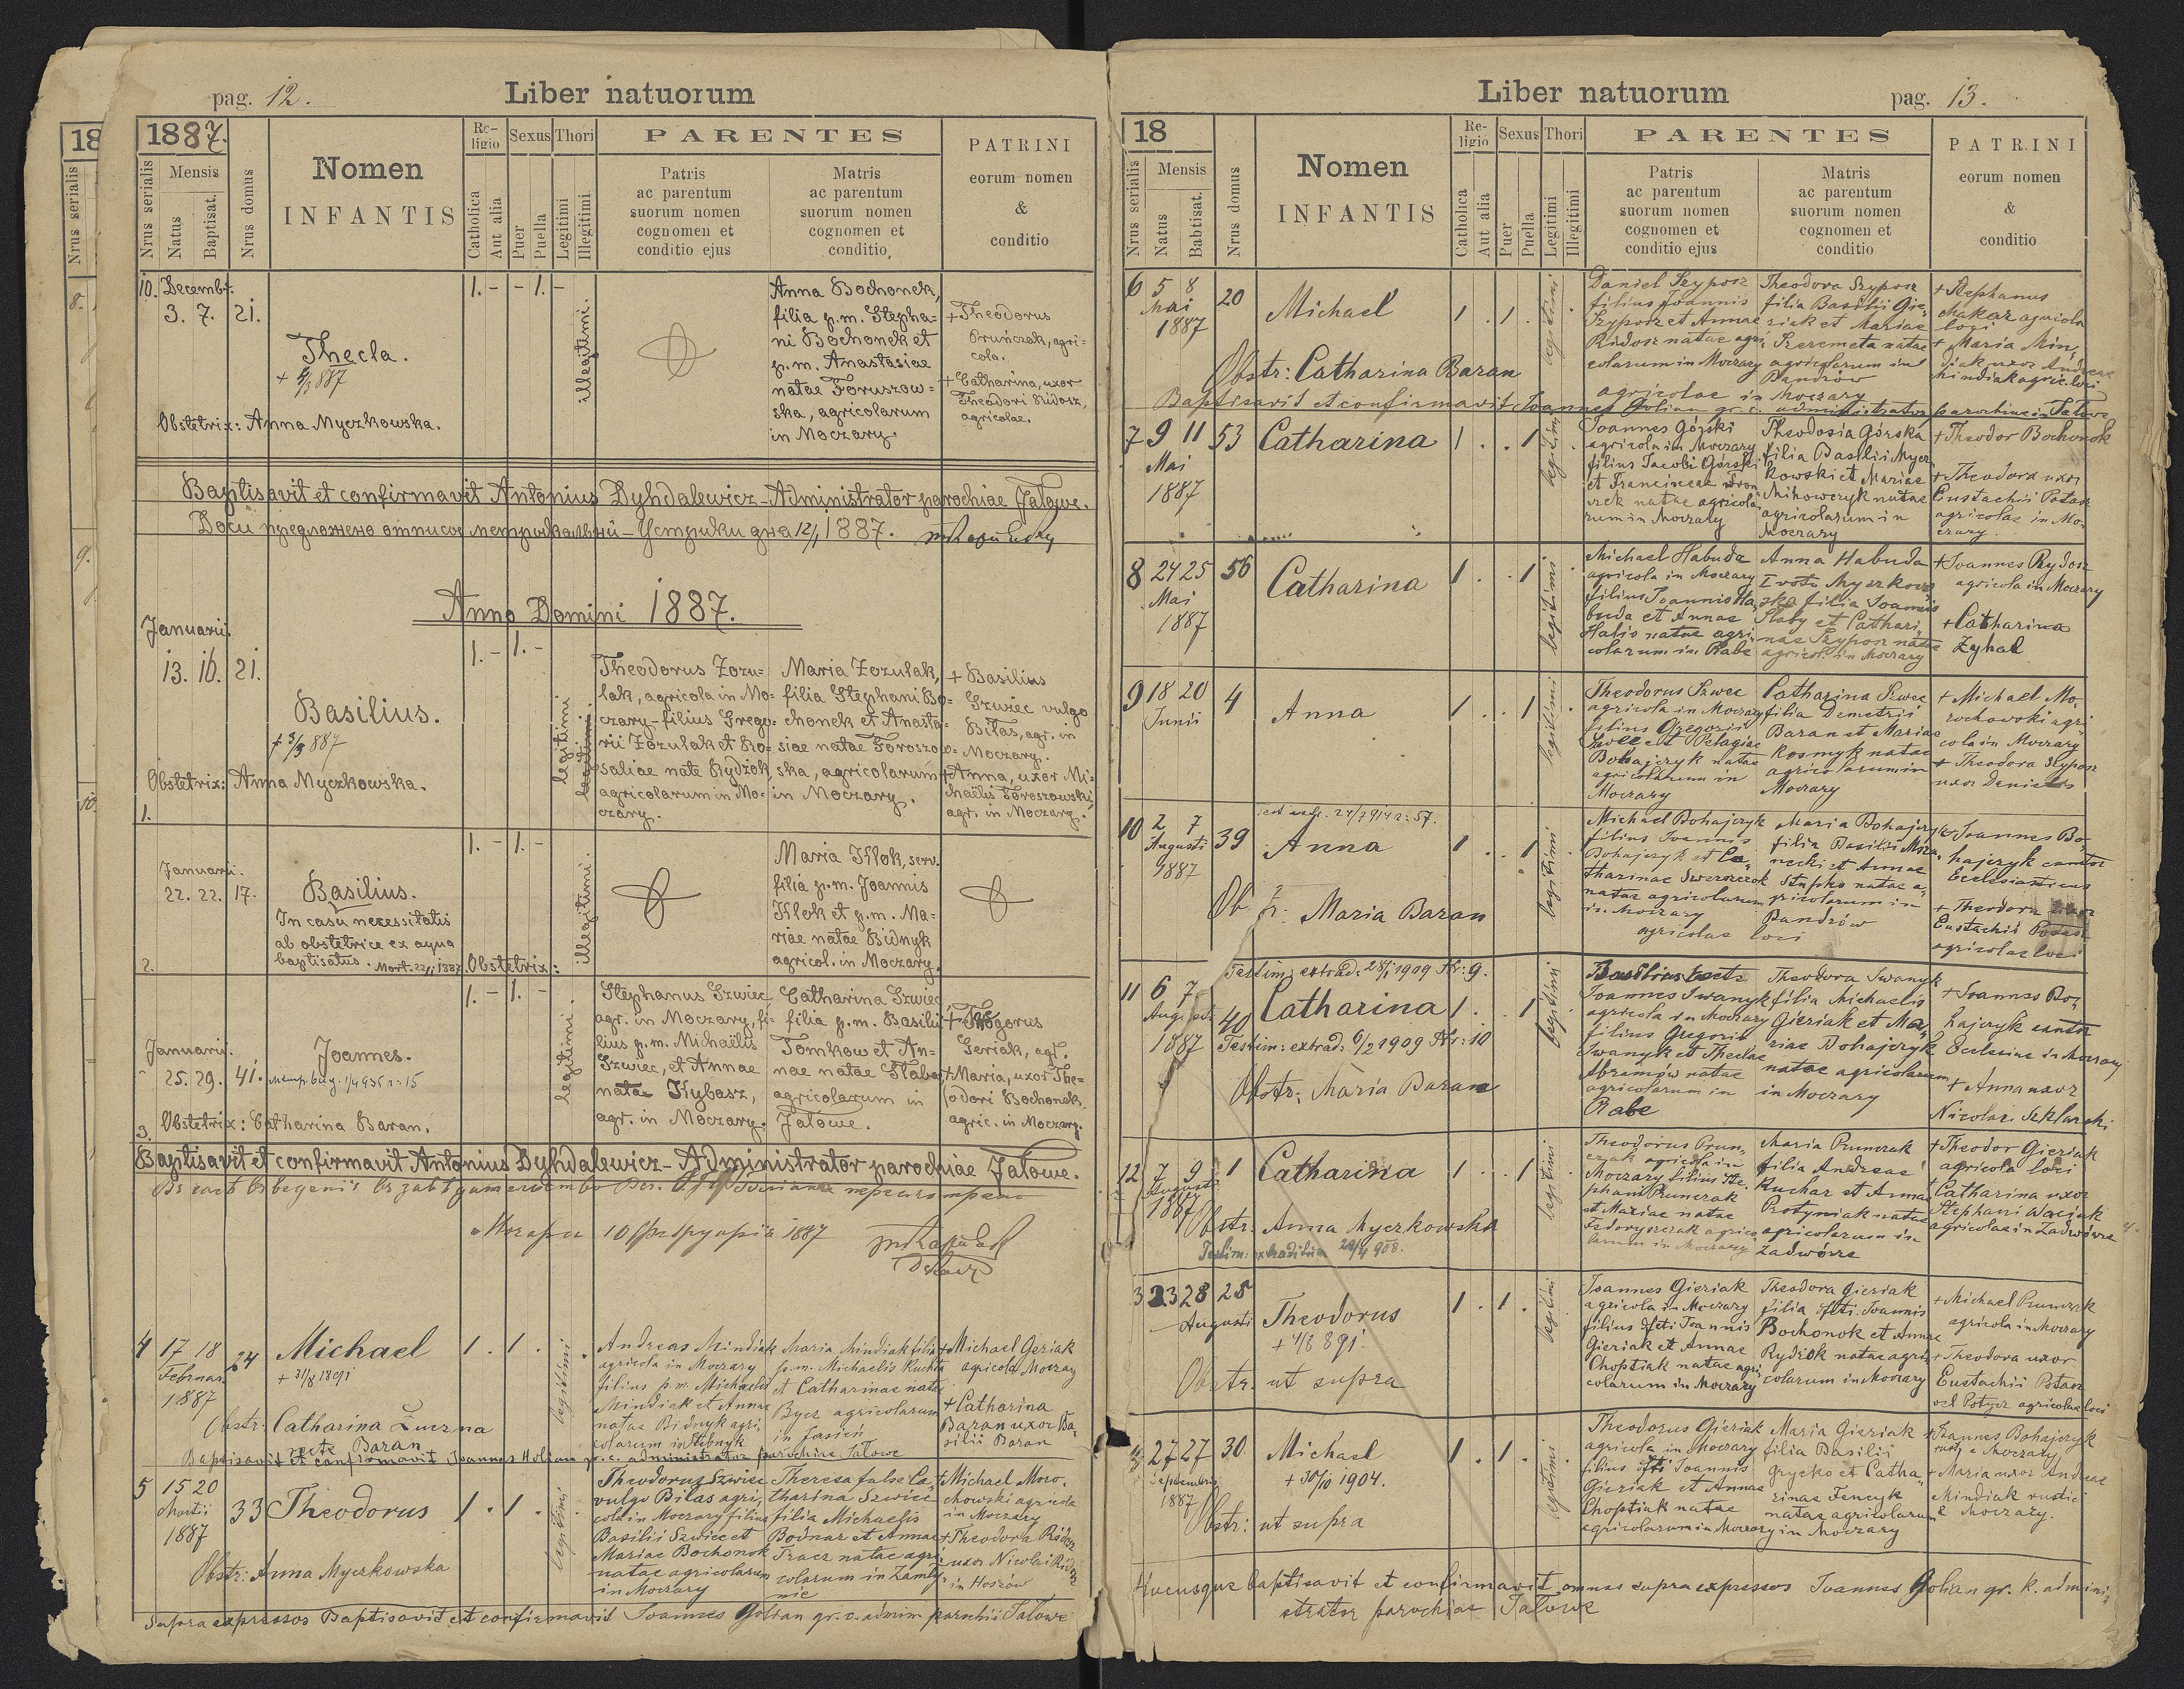 pag. 12.
Liber natuorum
1887.
Nrus serialis
Mensis
Natus
Baptisat.
Nrus domus
Nomen
INFANTIS
Re-
ligio
Catholica
Aut alia
Sexus
Puer
Puella
Thori
Legitimi
Illegitimi
PARENTES
Patris
ac parentum
suorum nomen
cognomen et
conditio ejus
Matris
ac parentum
suorum nomen
cognomen et
conditio
PATRINI
eorum nomen
&
conditio
10. Decembr.
3. 7. 21.
Thecla.
1. - - 1. -
illegitimi.
Obstetrix: Anna Myczkowska.
Anna Bochonek,
filia p.m. Stepha=
ni Bochonek et
p.m. Anastasiae
natae Foruszow=
ska, agricolarum
in Moczary.
+ Theodorus
Pruńczak, agri=
cola.
+ Catharina, uxor
Theodori Ridosz,
agricolae.
Baptisavit et confirmavit Antonius Dyhdalewicz - Administrator parochiae Jałowe.
12/1 1887.
Anno Domini 1887.
Januarii.
13. 16. 21.
Basilius.
+ 3/3 887
Obstetrix: Anna Myczkowska.
1.
1. - 1. -
legitimi
Theodorus Zozu=
lak, agricola in Mo=
czary - filius Grego=
rii Zozulak et Ro=
saliae nate Rydzok,
agricolarum in Mo=
czary.
Maria Zozulak,
filia Stephani Bo=
chonek et Anasta=
siae natae Foroszow=
ska, agricolarum
in Moczary.
+ Basilius
Szwiec vulgo
Biłas, agr. in
Moczary.
+ Anna, uxor Mi=
chaëlis Foroszowski,
agr. in Moczary.
Januarii.
22. 22. 17.
Basilius.
In casu necessitatis
ab obstetrice ex aqua
baptisatus. Mort. 22/1 1887.
Obstetrix:
2.
1. - 1. -
illegitimi.
Maria Klok, serv.
filia p.m. Joannis
Klok et p.m. Ma=
riae natae Bidnyk
agricol. in Moczary.
Januarii.
25. 29. 41.
Joannes.
Obstetrix: Catharina Baran.
3.
1. - 1. -
legitimi.
Stephanus Szwiec
agr. in Moczary, fi=
lius p.m. Michaëlis
Szwiec, et Annae
natae Kybasz,
agr. in Moczary.
Catharina Szwiec
filia p.m. Basilii
Tomkow et An=
nae natae Słaba,
agricolarum in
Jałowe.
Geriak, agr.
+ Maria, uxor The=
odori Bochonek
agric. in Moczary.
Baptisavit et confirmavit Antonius Dyhdalewicz - Administrator parochiae Jałowe.
1887
4 17 18 24
Februar
1887
Michael
+ 31/8 1891
Obstr: Catharina Zuczna
recte Baran
1. 1.
legitimi
Andreas Mindiak
agricola in Moczary
filius p.m. Michaelis
Mindiak et Annae
natae Bidnyk agri,
colarum in Stebnyk
Maria Mindiak filia
p.m. Michaelis Kuchta
et Catharinae natae
Bycz agricolarum
in Jasień
+ Michael Geriak
agricola Moczary
+ Catharina
Baran uxor Ba,
silii Baran
Baptisavit et confirmavit Joannes Holian gr. c. administrator parochiae Jałowe
5 15 20 33
Martii
1887
Theodorus
Obstr: Anna Myczkowska
1. 1.
legitimi
Theodorus Szwiec
vulgo Bilas agri,
cola in Moczary filius
Basilii Szwiec et
Mariae Bochonok
natae agricolarum
in Moczary
Theresa false Ca,
tharina Szwiec
filia Michaelis
Bodnar et Annae
Tracz natae agri,
colarum in Zamły,
nie
+ Michael Moro,
chowski agricola
in Moczary
+ Theodora Ridosz
uxor Nicolai Ridosz
in Hoszów
Supra expressos Baptisavit et confirmavit Joannes Golian gr. c. admin parochii Jalowe
Liber natuorum
pag. 13.
18
Nrus serialis
Mensis
Natus
Babtisat.
Nrus domus
Nomen
INFANTIS
Re-
ligio
Catholica
Aut alia
Sexus
Puer
Puella
Thori
Legitimi
Illegitimi
PARENTES
Patris
ac parentum
suorum nomen
cognomen et
conditio ejus
Matris
ac parentum
suorum nomen
cognomen et
conditio
PATRINI
eorum nomen
&
conditio
6 5 8 20
Mai
1887
Michael
Obstr: Catharina Baran
1. 1.
legitimi
Daniel Szyposz
filius Joannis
Szyposz et Annae
Ridosz natae agri,
colarum in Moczary
agricolae in Moczary
Theodora Szyposz
filia Basilii Gie,
riak et Mariae
Szeremeta natae
agricolarum in
Bandrów
+ Stephanus
Makar agricola
loci
+ Maria Min,
diak uxor Andreae
Mindiak agric. loci
Baptisavit et confirmavit Joannes Golian gr. c. administrator parochiae in Jałowe
7 9 11 53
Mai
1887
Catharina
1. . 1
legitimi
Joannes Górski
agricola in Moczary
filius Jacobi Górski
et Franciscae Wron
natae agricola,
rum in Moczary
Theodosia Górska
filia Basilii Mycz
kowski et Mariae
Mihowczyk natae
agricolarum in
Moczary
+ Theodor Bochonok
+ Theodora uxor
Eustachii Potasz
agricolae in Mo,
czary
8 24 25 56
Mai
1887
Catharina
1. . 1
legitimi
Michael Habuda
agricola in Moczary
filius Joannis Ha,
buda et Annae
Halis natae agri,
colarum in Rabe
Anna Habuda
I voto Myszkow
ska filia Joannis
Słaby et Cathari,
nae Szyposz natae
agricol. in Moczary
+ Joannes Rydosz
agricola in Moczary
+ Catharina
Zyhal
9 18 20 4
Junii
Anna
1. . 1
legitimi
Theodorus Szwec
agricola in Moczary
filius Gregorii
Szwec et Pelagiae
Bohajczyk natae
agricolarum in
Moczary
Catharina Szwec
filia Demetrii
Baran et Mariae
Kosmyk natae
agricolarum in
Moczary
+ Michael Mo,
rochowski agri
cola in Moczary
+ Theodora Szyposz
uxor Danielis
10 2 7 39
Augusti
1887
Anna
Maria Baran
1. . 1
legitimi
Michael Bohajczyk
filius Joannis
Bohajczyk et Ca,
tharinae Szwerszczok
natae agricolarum
in Moczary
agricolae loci
Maria Bohajczyk
filia Basilii Moza,
necki et Annae
Stupko natae a,
gricolarum in
Bandrów
+ Joannes Bo,
hajczyk cantor
Ecclesiasticus
+ Theodora uxor
Eustachii Potasz
agricolae loci
11 6 7 40
Augusti
1887
Testim: extrad: 28/1 1909 Nr: 9.
Catharina
Testim: extrad: 6/2 1909 Nr: 10
Obstr: Maria Baran
1. . 1
legitimi
Joannes Iwanyk
agricola in Moczary
filius Gregorii
Iwanyk et Theclae
Abramów natae
agricolarum in
Rabe
Theodora Iwanyk
filia Michaelis
Gieriak et Ma,
riae Bohajczyk
natae agricolarum
in Moczary
+ Joannes Bo,
hajczyk cantor
Ecclesiae in Moczary
+ Anna uxor
Nicolai Szklarski
12 7 9 1
Augusti
1887
Catharina
Obstr: Anna Myczkowska
Testim: extraditum 24/4 908.
1. . 1
legitimi
Theodorus Prun,
czak agricola in
Moczary filius Ste,
phani Prunczak
et Mariae natae
Fedoryszczak agrico,
larum in Moczary
Maria Prunczak
filia Andreae
Kuchar et Annae
Protyniak natae
agricolarum in
Zadwórze
+ Theodor Gieriak
agricola loci
+ Catharina uxor
Stephani Waciak
agricolae in Zadwórze
3 23 28 28
Augusti
Theodorus
+ 4/8 891.
Obstr. ut supra
1. 1.
legitimi
Joannes Gieriak
agricola in Moczary
filius dfcti Joannis
Gieriak et Annae
Choptiak natae agri
colarum in Moczary
Theodora Gieriak
filia dfti. Joannis
Bochonok et Annae
Rydzok natae agri,
colarum in Moczary
+ Michael Prunczak
agricola in Moczary
+ Theodora uxor
Eustachii Potasz
vel Potycz agricolae loci
27 27 30
Septembris
1887
Michael
+ 30/10 1904.
Obstr: ut supra
1. 1.
legitimi
Theodorus Gieriak
agricola in Moczary
filius dfti Joannis
Gieriak et Annae
Choptiak natae
agricolarum in Moczary
Maria Gieriak
filia Basilii
Gryćko et Catha,
rinae Fencyk
natae agricolarum
in Moczary
+ Joannes Bohajczyk
rust. e Moczary
+ Maria uxor Andreae
Mindiak rustici
e Moczary.
Hucusque baptisavit et confirmavit omnes supra expressos Joannes Golian gr. k. admini,
strator parochiae Jalowe